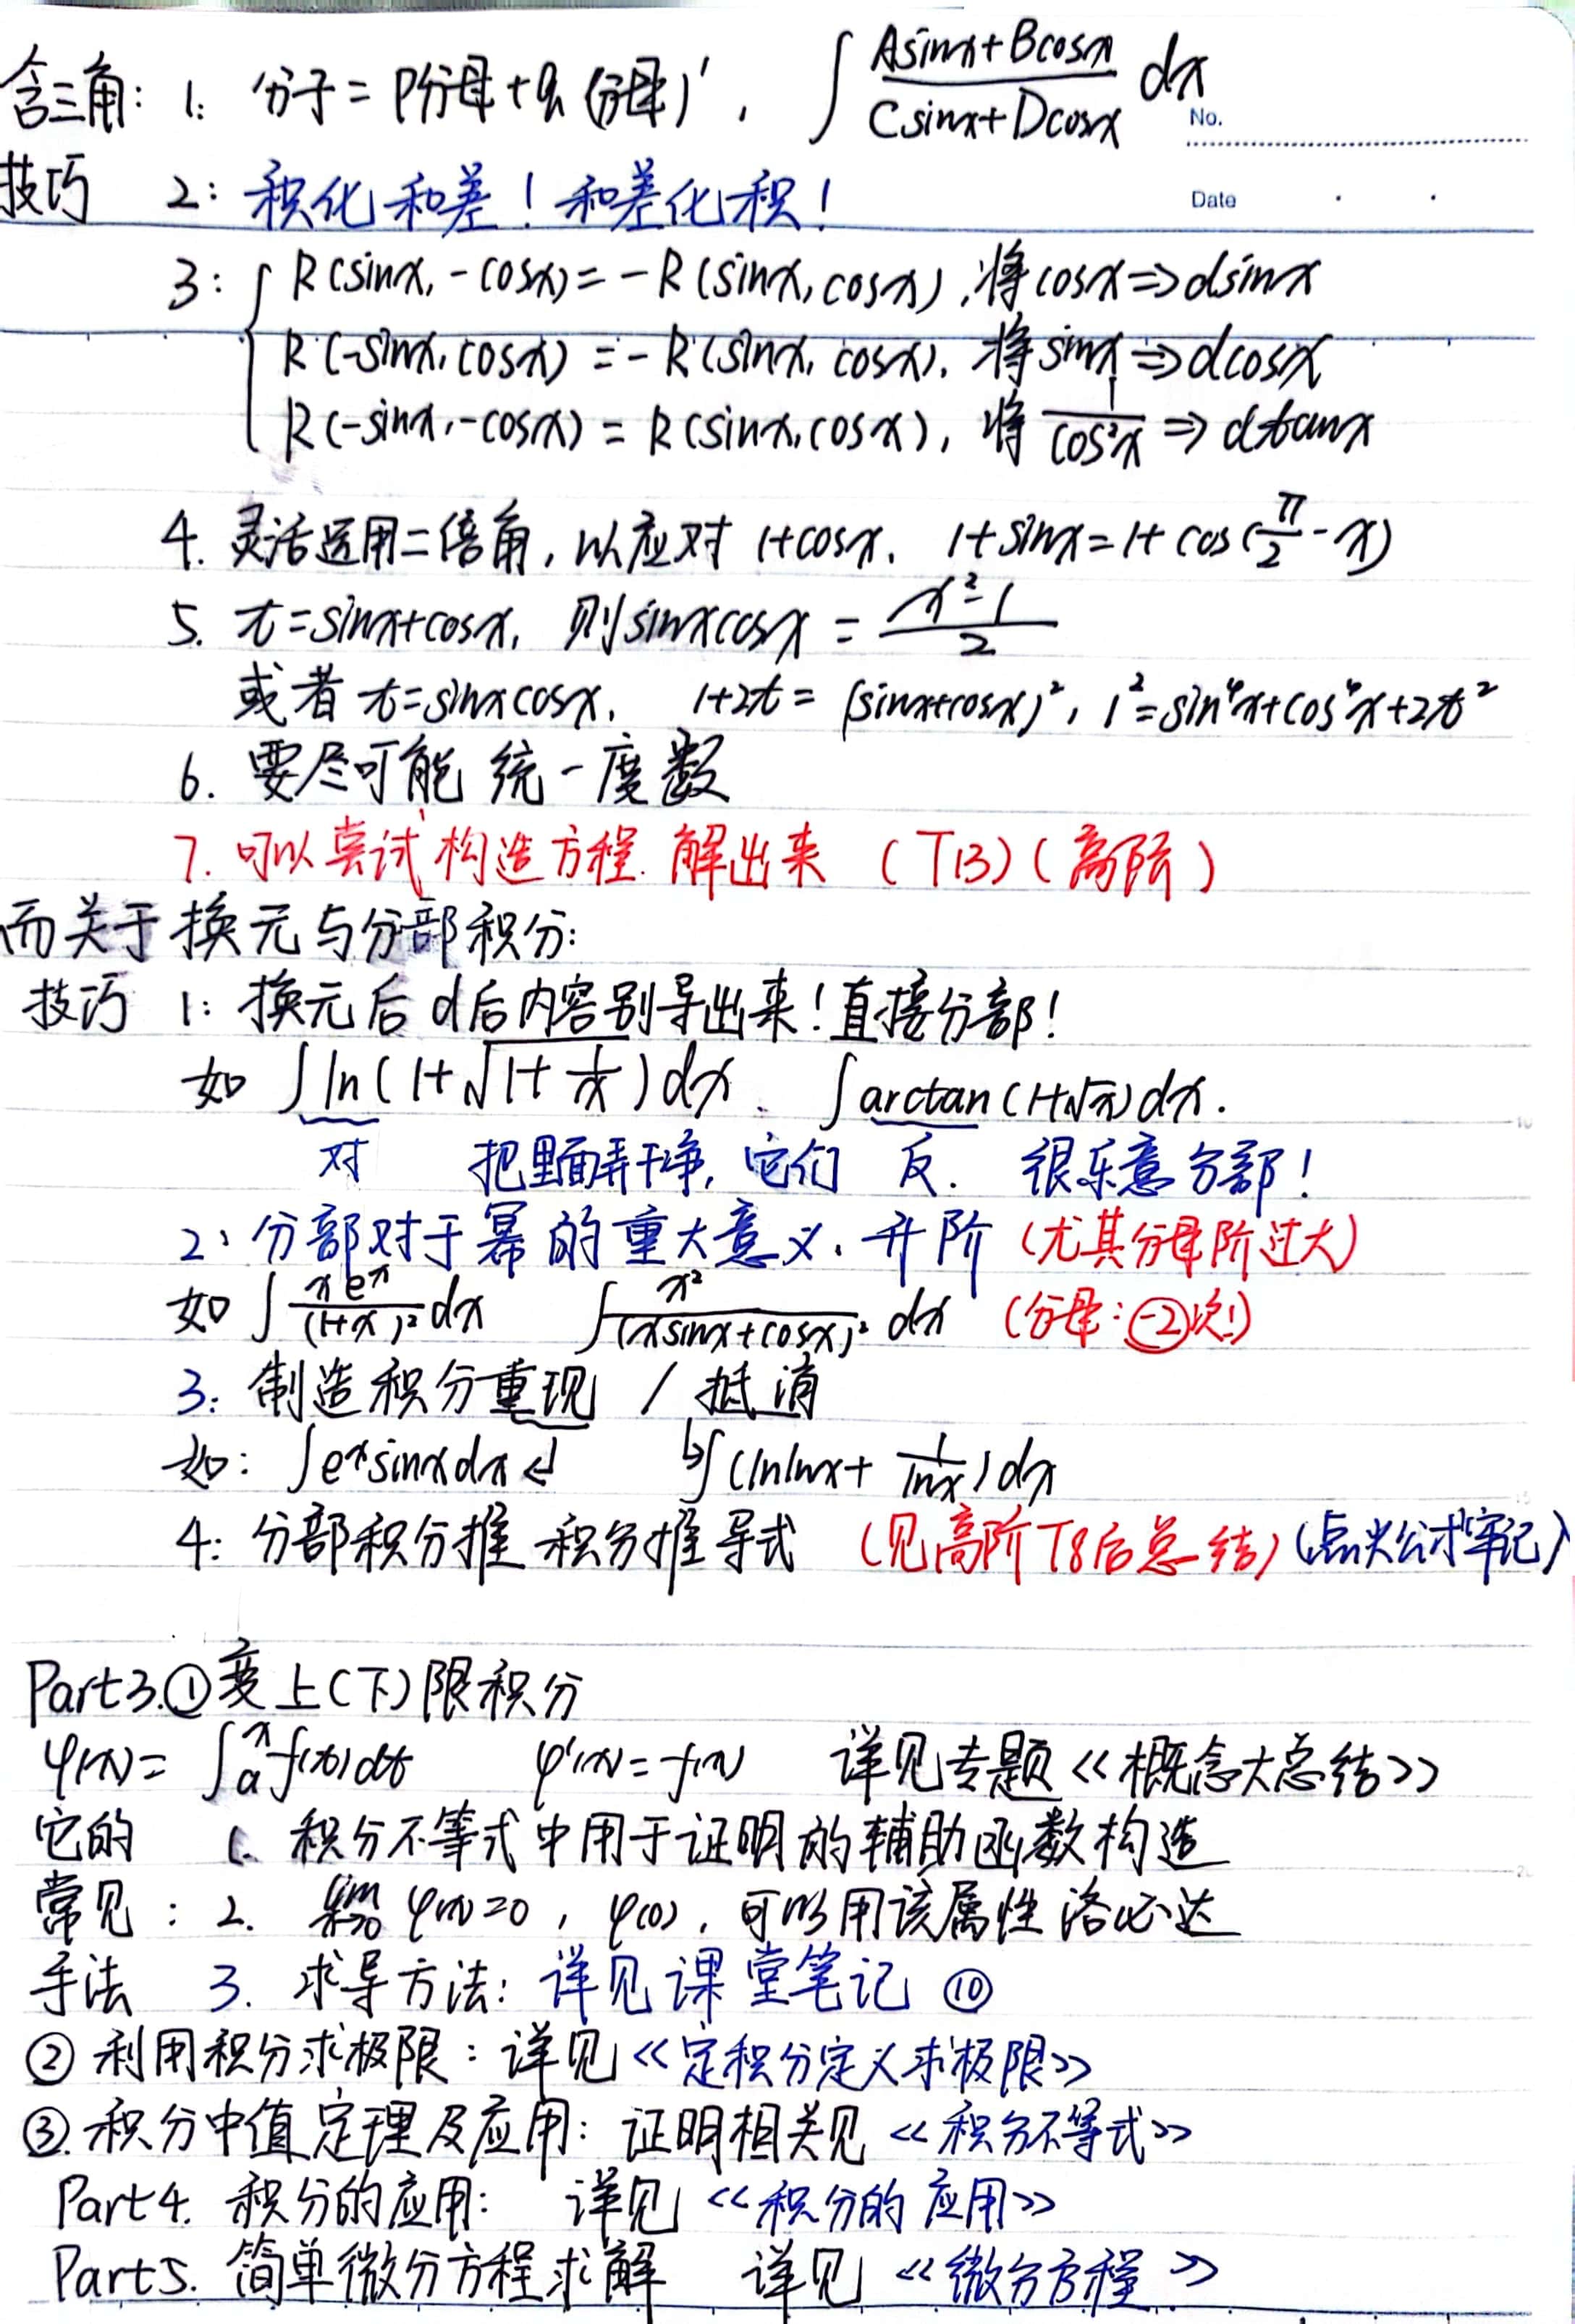 含三角: 1: 分子 = P分母 + q (分母)', ∫ (Asinx+Bcosx)/(Csinx+Dcosx) dx
No.
技巧 2: 积化和差! 和差化积!
Date
3: { R(sinx, -cosx) = -R(sinx, cosx), 将cosx ⇒ dsinx
R(-sinx, cosx) = -R(sinx, cosx), 将sinx ⇒ dcosx
R(-sinx, -cosx) = R(sinx, cosx), 将 1/cos²x ⇒ dtanx
4. 灵活运用二倍角, 以应对 1+cosx, 1+sinx = 1+cos(π/2 - x)
5. t=sinx+cosx, 则sinxcosx = (x²-1)/2
或者 t=sinxcosx, 1+2t = (sinx+cosx)², 1²=sin⁴x+cos⁴x+2t²
6. 要尽可能统一度数
7. 可以尝试构造方程. 解出来 (T13)(高阶)
而关于换元与分部积分:
技巧 1: 换元后 d后内容别导出来! 直接分部!
如 ∫ln(1+√(1+1/x))dx. ∫arctan(1+√x)dx.
对 把里面弄干净, 它们 反. 很乐意分部!
2: 分部对于幂的重大意义. 升阶 (尤其分母阶过大)
如 ∫ xeˣ/(1+x)² dx ∫ x²/(xsinx+cosx)² dx (分母: -2次!)
3: 制造积分重现 / 抵消
如: ∫eˣsinxdx ↲ ↳∫(lnlnx + 1/lnx)dx
4: 分部积分推 积分推导式 (见高阶T8后总结) (点火公式牢记)
Part3.① 变上(下)限积分
φ(x) = ∫ₐˣ f(t)dt φ'(x) = f(x) 详见专题《概念大总结》
它的 1. 积分不等式中用于证明的辅助函数构造
常见: 2. lim x→0 φ(x)=0, φ(0), 可以用该属性洛必达
手法 3. 求导方法: 详见课堂笔记 ⑩
② 利用积分求极限: 详见《定积分定义求极限》
③. 积分中值定理及应用: 证明相关见《积分不等式》
Part4. 积分的应用: 详见《积分的应用》
Part5. 简单微分方程求解 详见《微分方程》